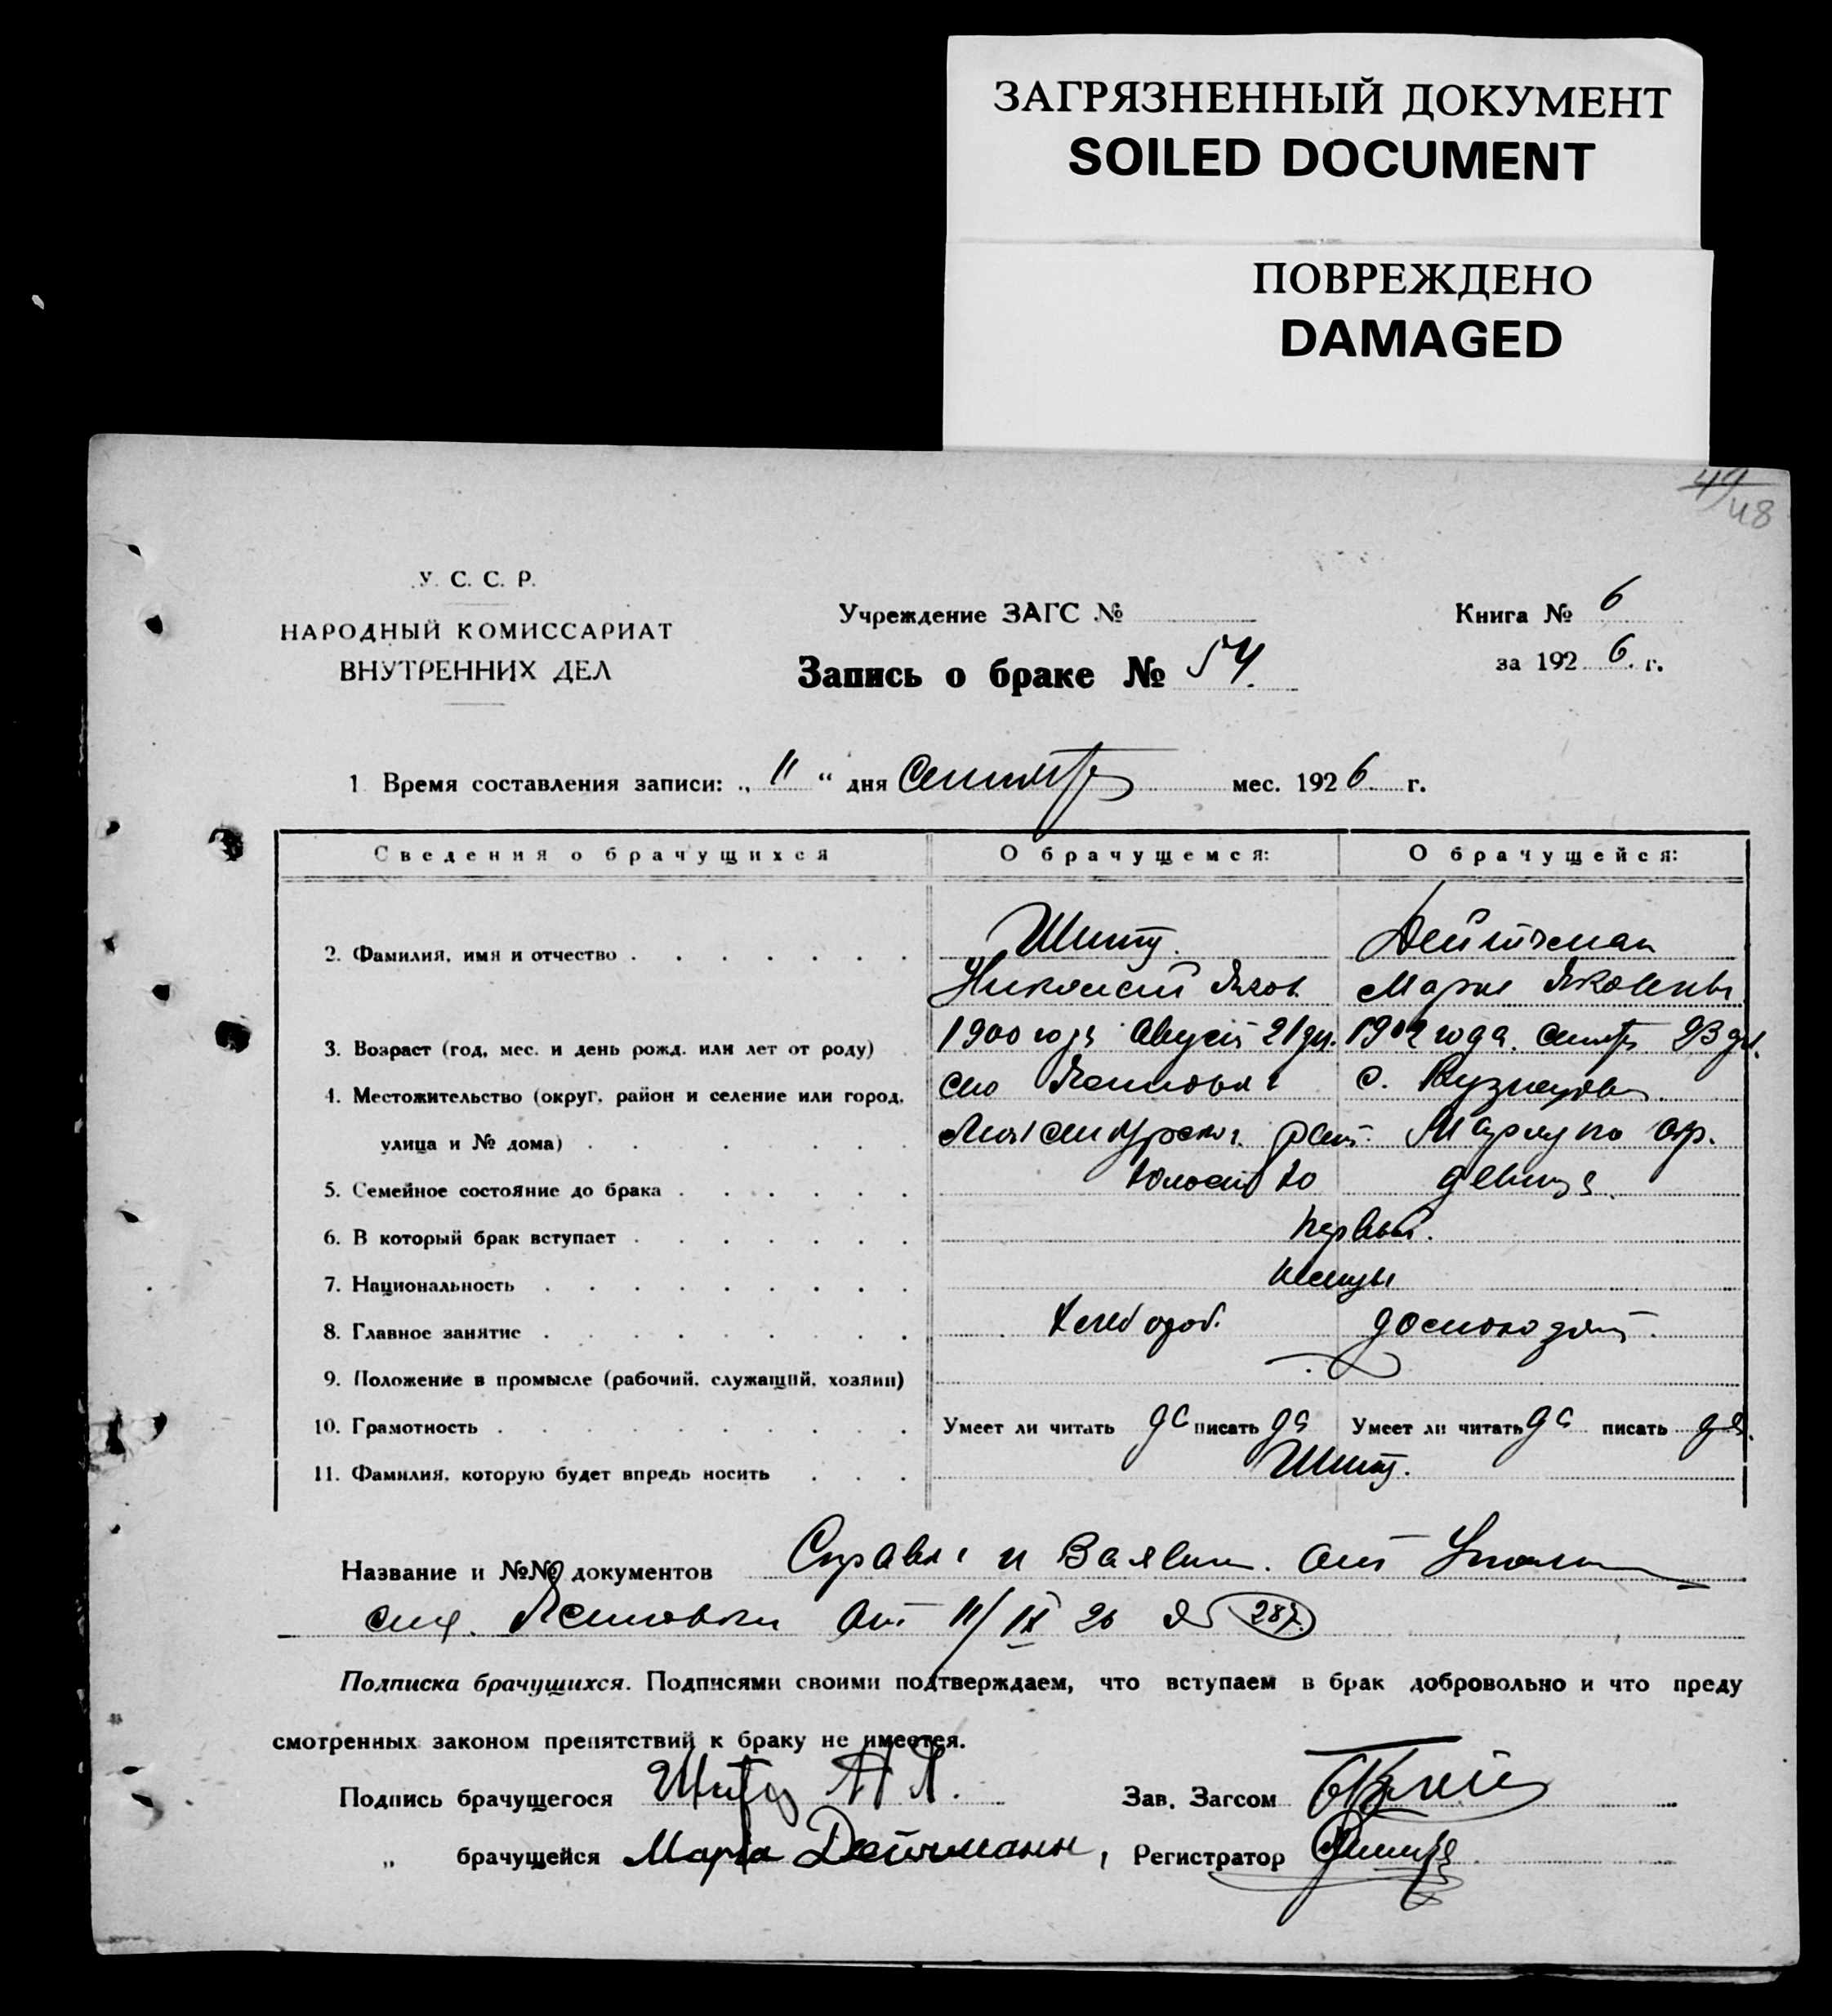 ЗАГРЯЗНЕННЫЙ ДОКУМЕНТ
SOILED DOCUMENT
ПОВРЕЖДЕНО
DAMAGED
49/48
У. С. С. Р.
НАРОДНЫЙ КОМИССАРИАТ
ВНУТРЕННИХ ДЕЛ
Учреждение ЗАГС №
Книга № 6
за 1926. г.
Запись о браке № 54.
1. Время составления записи: „11“ дня мес. 1926. г.
Сведения о брачущихся О брачущемся: О брачущейся:
2. Фамилия, имя и отчество Шитц.
Николай Яков.
3. Возраст (год, мес. и день рожд. или лет от роду) 1900 года 21 дн. 1902 года. 23 дн.
4. Местожительство (округ, район и селение или город,
улица и № дома) окр.
5. Семейное состояние до брака девица
6. В который брак вступает первый.
7. Национальность немцы
8. Главное занятие хлебороб.
9. Положение в промысле (рабочий, служащий, хозяин)
10. Грамотность Умеет ли читать да писать да Умеет ли читать да писать да.
11. Фамилия, которую будет впредь носить Шитц.
Название и №№ документов и
от 11/IX 26 № 287.
Подписка брачущихся. Подписями своими подтверждаем, что вступаем в брак добровольно и что преду
смотренных законом препятствий к браку не имеется.
Подпись брачущегося Шитц Н Я. Зав. Загсом
„ брачущейся Марiа Дейчманн, Регистратор